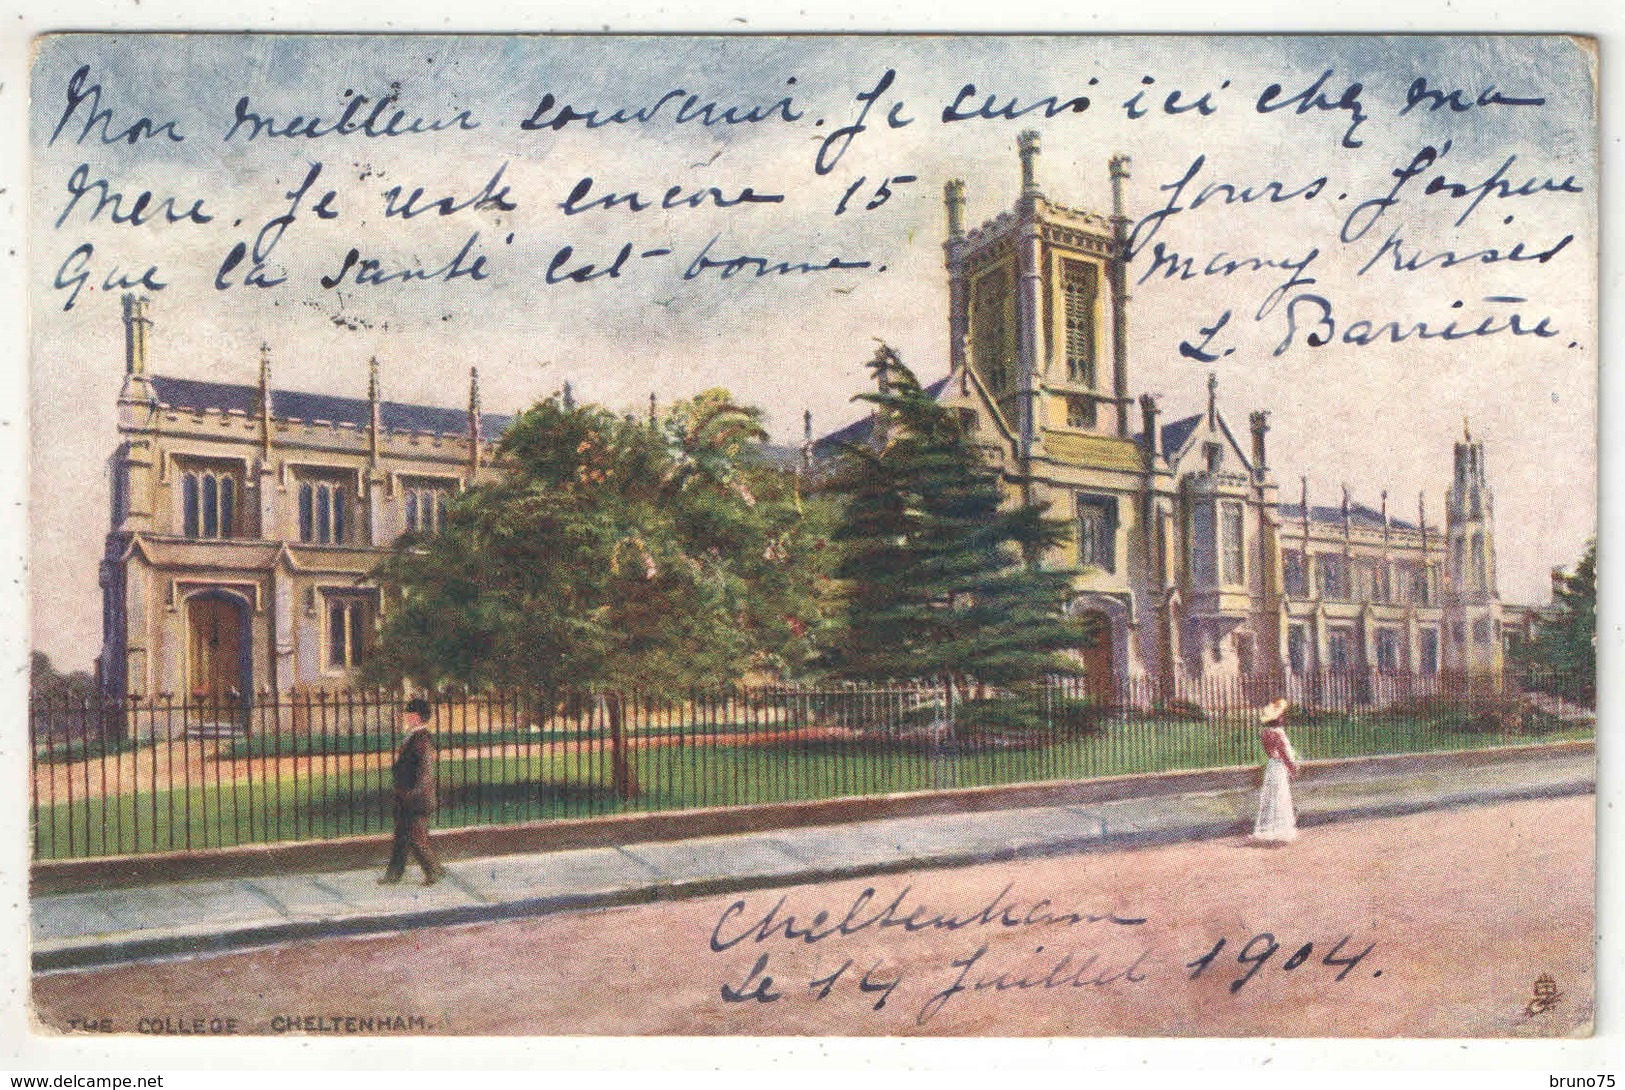 Mon meilleur souvenir. Je suis ici chez ma
Mere. Je reste encore 15 Jours. J'espere
Que la santé est bonne. Many Kisses
L. Barrière.
Cheltenham
Le 14 Juillet 1904.
THE COLLEGE CHELTENHAM.
www.delcampe.net
bruno75